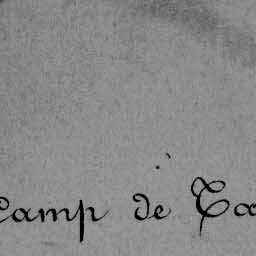 Camp de Ca